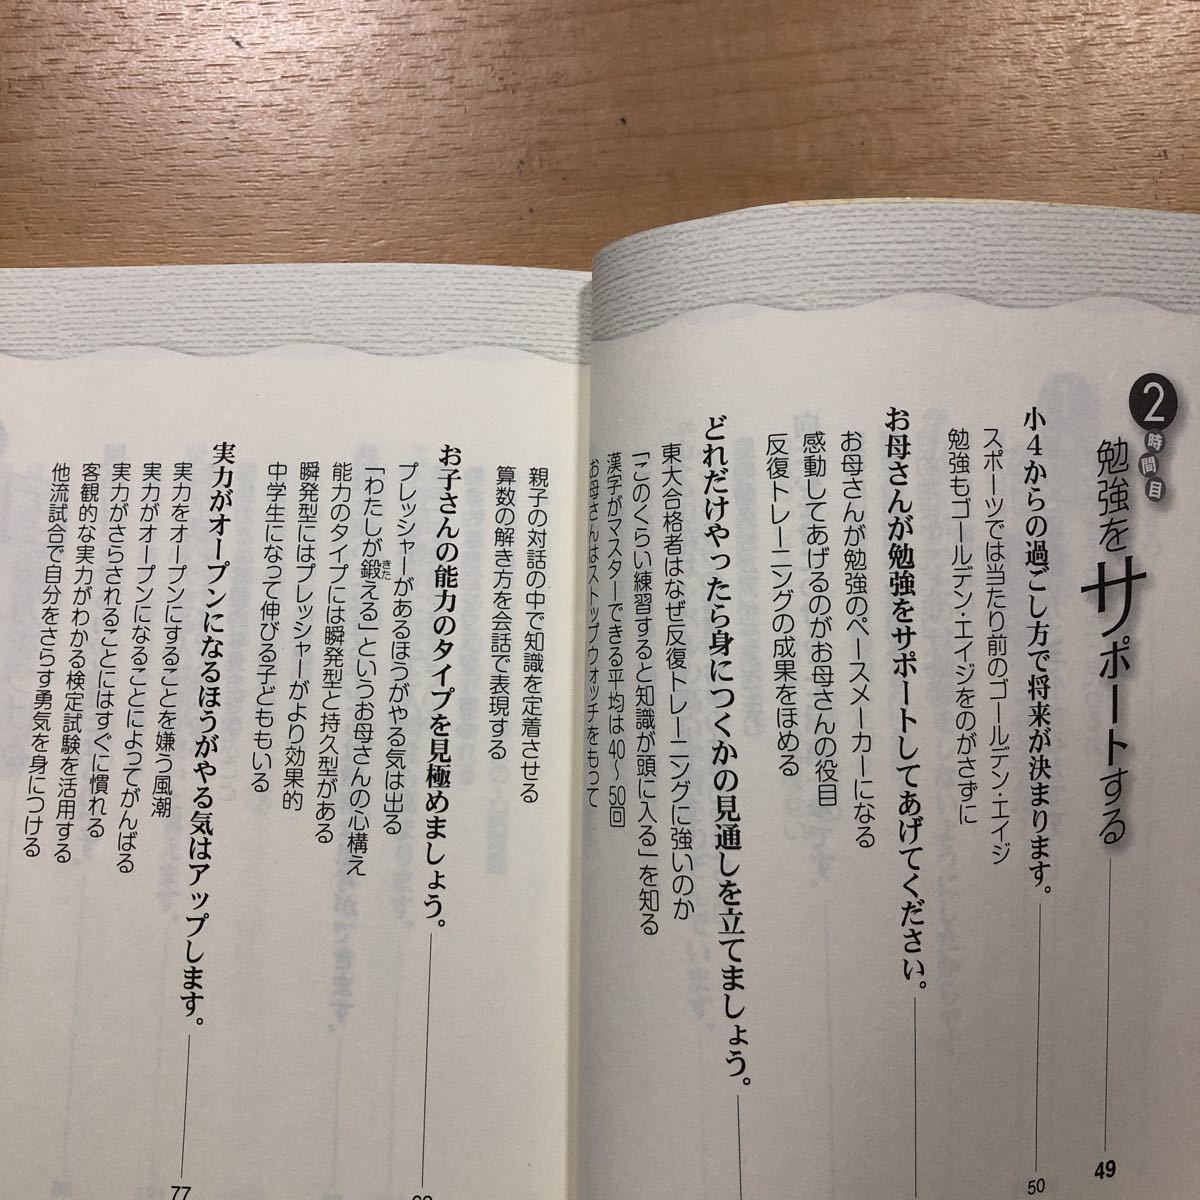 2時間目
勉強をサポートする
49
小4からの過ごし方で将来が決まります。
50
スポーツでは当たり前のゴールデン・エイジ
勉強もゴールデン・エイジをのがさずに
お母さんが勉強をサポートしてあげてください。
お母さんが勉強のペースメーカーになる
感動してあげるのがお母さんの役目
反復トレーニングの成果をほめる
どれだけやったら身につくかの見通しを立てましょう。
東大合格者はなぜ反復トレーニングに強いのか
「このくらい練習すると知識が頭に入る」を知る
漢字がマスターできる平均は40〜50回
お母さんはストップウォッチをもって
親子の対話の中で知識を定着させる
算数の解き方を会話で表現する
お子さんの能力のタイプを見極めましょう。
プレッシャーがあるほうがやる気は出る
「わたしが鍛える」というお母さんの心構え
きた
能力のタイプには瞬発型と持久型がある
瞬発型にはプレッシャーがより効果的
中学生になって伸びる子どももいる
実力がオープンになるほうがやる気はアップします。
77
実力をオープンにすることを嫌う風潮
実力がオープンになることによってがんばる
実力がさらされることにはすぐに慣れる
客観的な実力がわかる検定試験を活用する
他流試合で自分をさらす勇気を身につける